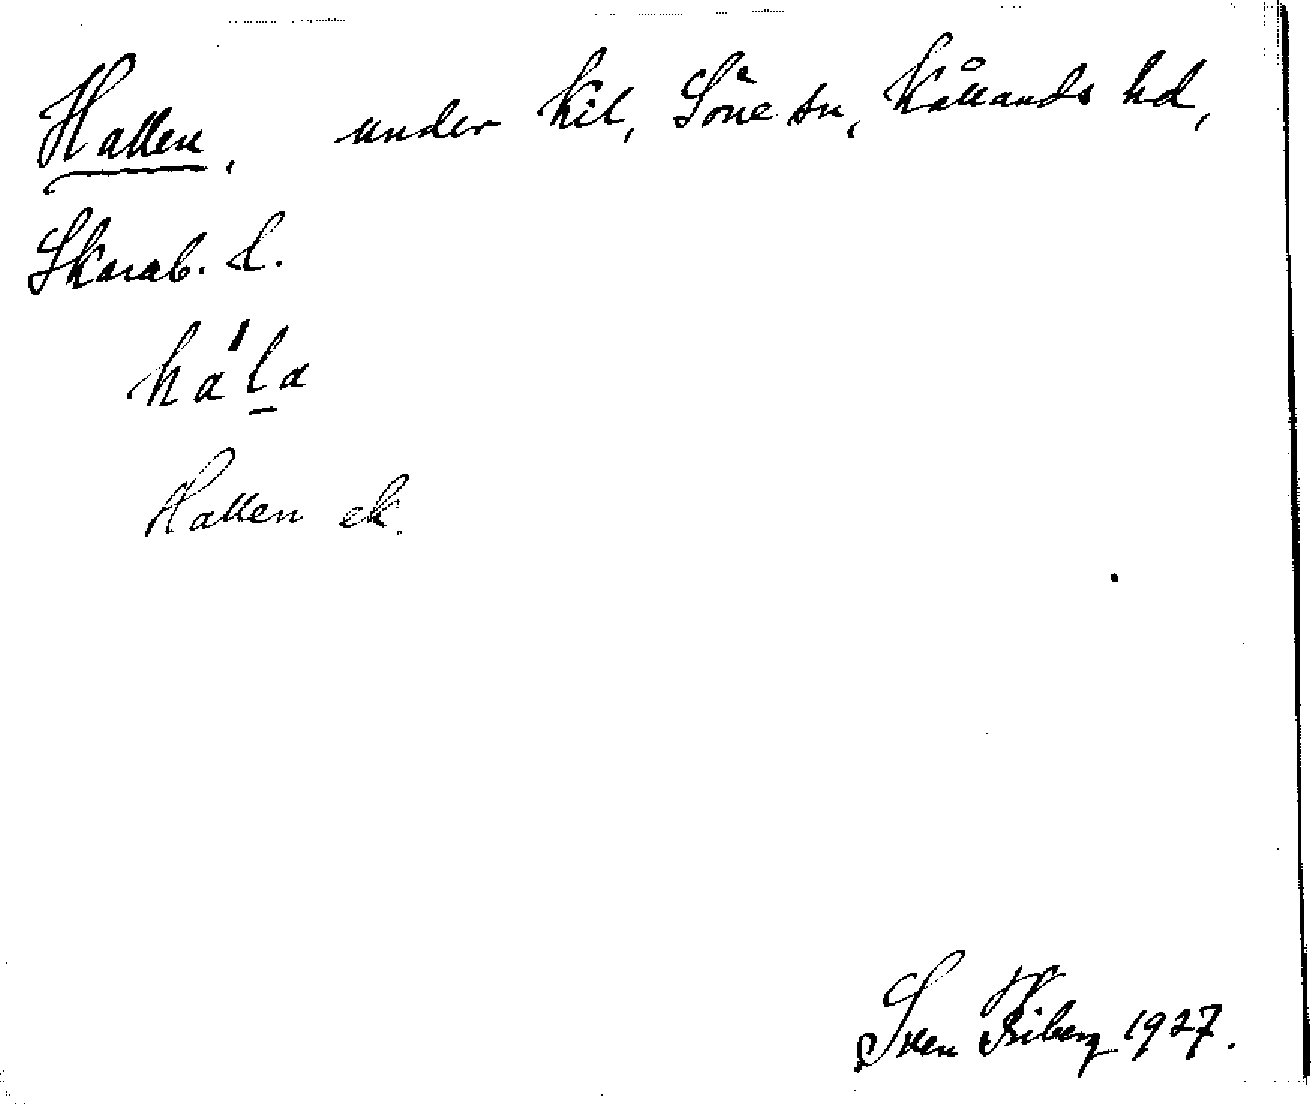 Hallen, under Kil, Söne sn, Kållands hd,
Skarab. l.
ha'la
Hallen ek.
Sven Friberg 1927.